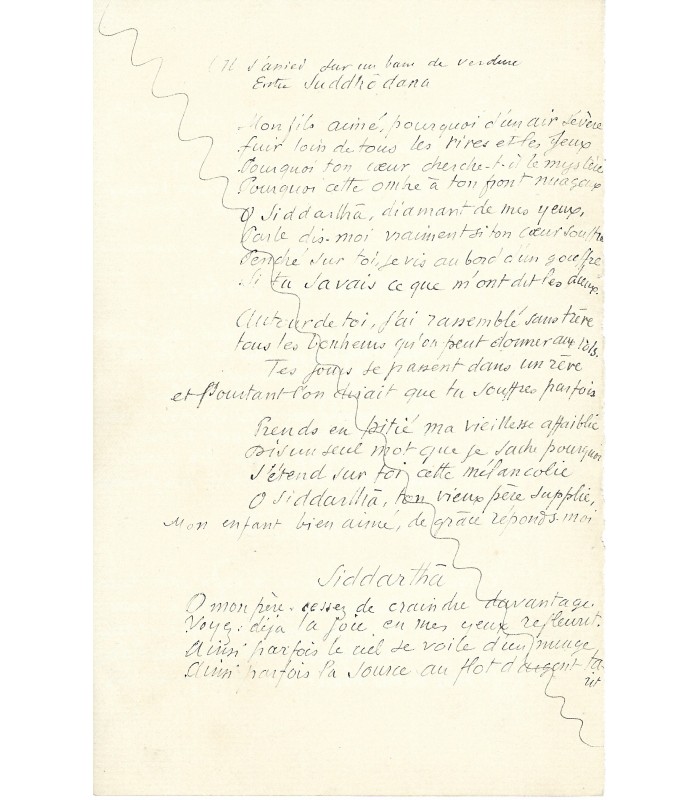 (Il s'assied sur un banc de verdure
Entre Suddhôdana
Mon fils aimé, pourquoi d'un air sévère
fuir loin de tous les rires et les jeux
Pourquoi ton cœur cherche-t-il le mystère
Pourquoi cette ombre à ton front nuageux
O Siddarthâ, diamant de mes yeux,
Parle dis-moi vraiment si ton cœur souffre
Penché sur toi, je vis au bord d'un gouffre
Si tu savais ce que m'ont dit les aïeux.
Autour de toi, j'ai rassemblé sans trêve
tous les bonheurs qu'on peut donner aux rois.
Tes jours se passent dans un rêve
et Pourtant l'on dirait que tu souffres parfois
Prends en pitié ma vieillesse affaiblie
Dis un seul mot que je sache pourquoi
S'étend sur toi cette mélancolie
O Siddarthâ, ton vieux père supplie,
Mon enfant bien aimé, de grâce réponds-moi
Siddarthâ
O mon père. cessez de craindre davantage.
Voyez. déja la joie en mes yeux refleurit.
Ainsi parfois le ciel se voile d'un nuage
Ainsi parfois la source au flot d'argent ta-
rit